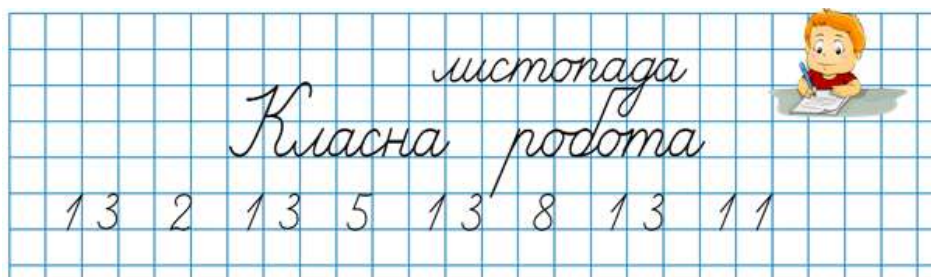 листопада
Класна робота
13 2 13 5 13 8 13 11